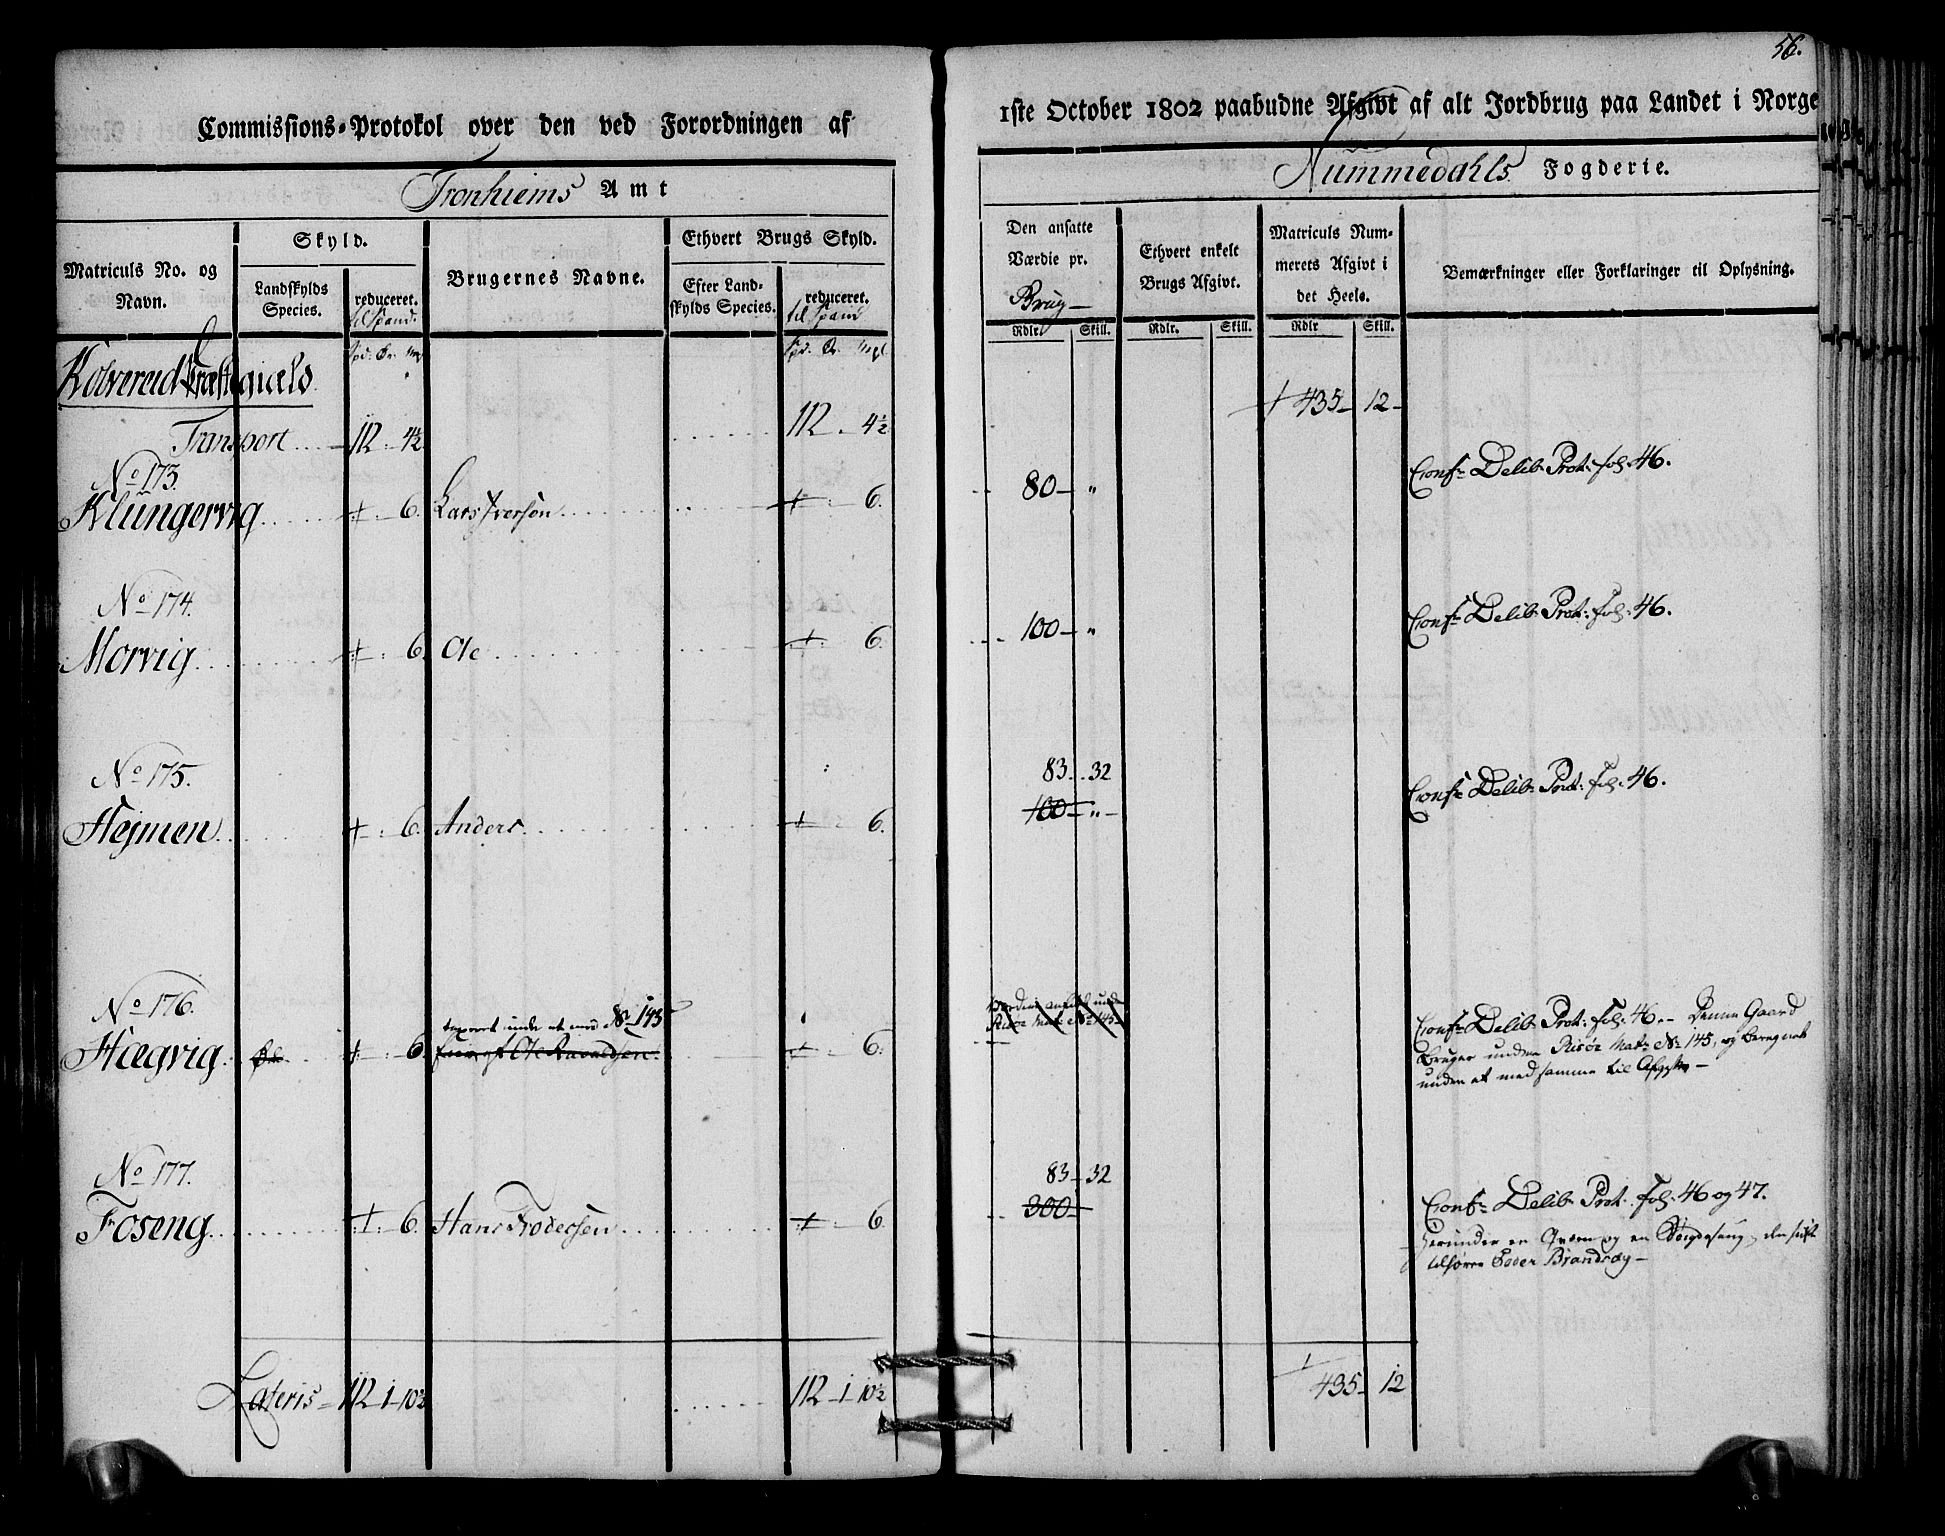 56.
Commissions-Protokol over den ved Forordningen af 1ste October 1802 paabudne Afgivt af alt Jordbrug paa Landet i Norge
Tronhiems Amt
Nummedahls Fogderie.
Matriculs No. og Navn.
Skyld.
Landskylds Species.
reduceret. til Spand.
Brugernes Navne.
Ethvert Brugs Skyld.
Efter Landskylds Species.
reduceret. til Spand
Den ansatte Værdie pr. Brug
Rdlr. Skill.
Ethvert enkelt Brugs Afgivt.
Rdlr. Skill.
Matriculs Nummerets Afgivt i det Heele.
Rdlr Skill.
Bemærkninger eller Forklaringer til Oplysning.
Kolvereid Præstegiæld
Transport 112 - 4½ 112 . 4½ 435 - 12 -
No 173.
Klüngervig 6. Lars Iversøn 6. 80 - " Confr Delib: Prot: fol. 46.
No 174.
Morvig 6. Ole 6. 100 - " Confr Delib: Prot: fol: 46.
No 175. 83 . 32
Hejmen 6. Anders 6. 100 - " - Confr Delib: Prot: fol: 46.
No 176.
taxeret under et med No 145
Hægvig 6. Ole 6.
Risøe Mat: No 145
Confr Delib: Prot: fol: 46 - Denne Gaard
bruges under Risøe Matr: No 145, og beregnet
under et med samme til Afgift -
No 177. 83 - 32
Foseng 6. Hans Frodersen 6. 300 - Confr Delib: Prot: fol: 46 og 47.
herunder en Qværn og en
tilhører Peder Brandsøg -
Lateris - 112 - 1 - 10½ 112 - 1 - 10½ 435 - 12